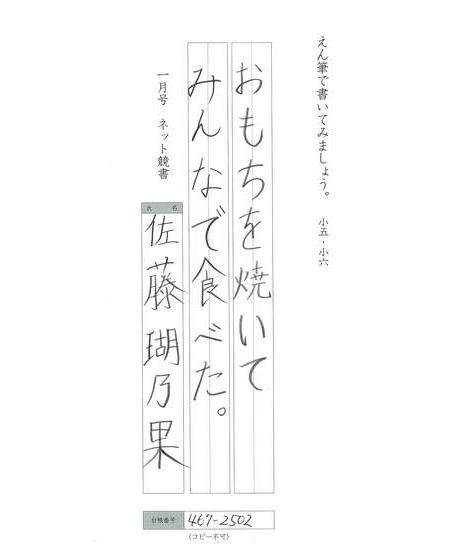 えん筆で書いてみましょう。 小五・小六
おもちを焼いて
みんなで食べた。
一月号 ネット競書
氏名
佐藤瑚乃果
台帳番号 467-2502
(コピー不可)